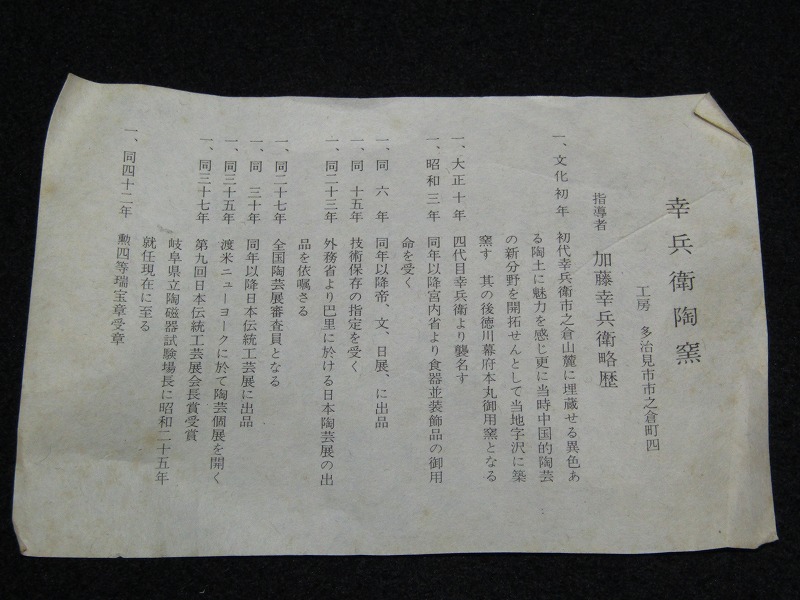 幸兵衛陶窯
工房 多治見市市之倉町四
指導者 加藤幸兵衛略歴
一、文化初年 初代幸兵衛市之倉山麓に埋蔵せる異色あ
る陶土に魅力を感じ更に当時中国的陶芸
の新分野を開拓せんとして当地字沢に築
窯す 其の後徳川幕府本丸御用窯となる
一、大正十年 四代目幸兵衛より襲名す
一、昭和三年 同年以降宮内省より食器並装飾品の御用
命を受く
一、同 六 年 同年以降帝、文、日展、に出品
一、同 十五年 技術保存の指定を受く
一、同二十三年 外務省より巴里に於ける日本陶芸展の出
品を依嘱さる
一、同二十七年 全国陶芸展審査員となる
一、同 三十年 同年以降日本伝統工芸展に出品
一、同三十五年 渡米ニューヨークに於て陶芸個展を開く
一、同三十七年 第九回日本伝統工芸展会長賞受賞
岐阜県立陶磁器試験場長に昭和二十五年
就任現在に至る
一、同四十二年 勲四等瑞宝章受章